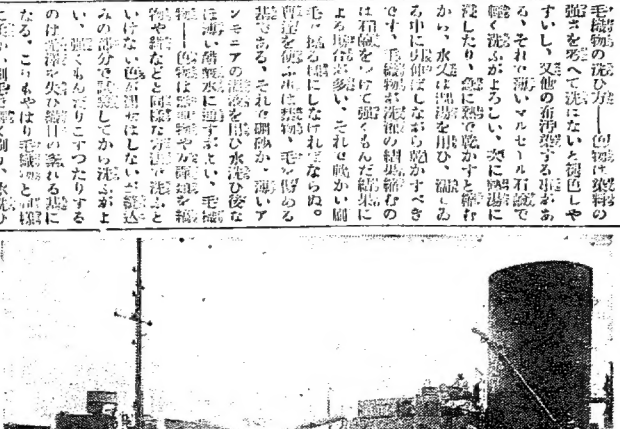 毛織物の洗ひ方――色物は染料の
強さを考へて洗はないと褪色しや
すいし、又他の布汚染する事があ
る、それで薄いマルセール石鹸で
軽く洗ふがよろしい、次に熱湯に
浸したり、急に熱で乾かすと縮む
から、水又は温湯を用ひ、湿しゐ
る中に引伸ばしながら乾かすべき
です、毛織物が洗濯の結果縮むの
は石鹸をつけて強くもんだ結果に
よる場合が多い、それで軟かい刷
毛で擦る様にしなければならぬ。
曹達を使ふ事は禁物、毛を傷める
基である、それで硼砂か、薄いア
ンモニアの溶液を用ひ水洗ひ後な
は薄い醋酸水に通すがよい、毛
物――色物は
物や絹などと同様な方法で洗ふと
いけない色が褪せはしないか縫込
みの部分で試験してから洗ふがよ
い、強くもんだりこすつたりする
のは光沢を失ひ織目の乱れる基に
なる。これもやはり毛織物と同様
に軟かい刷毛で軽く刷り、水洗ひ